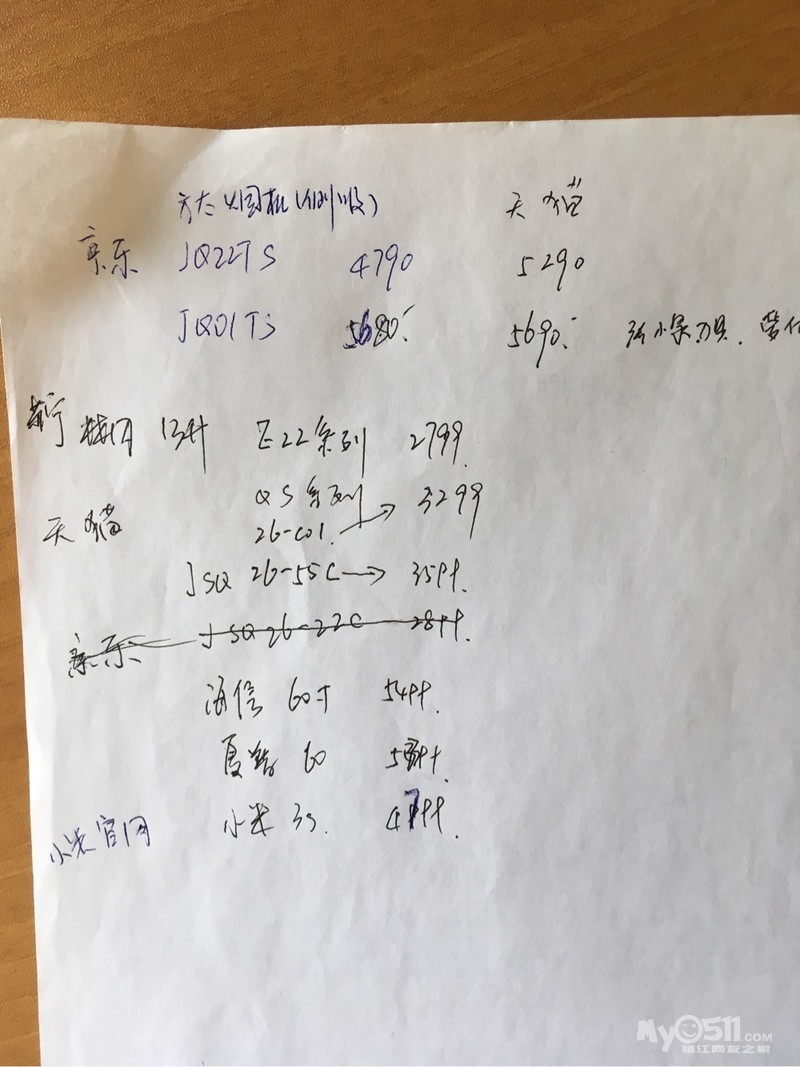 方太 烟机(侧吸) 天猫
京东 JQ22TS 4790 5290
JQ01TS 5680.- 5690.- 张小泉刀具.
苏宁 林内 13升 E22系列 2799.
QS系列
天猫 26-C01. → 3299
JSQ 26-55C → 3599.
京东 JSQ26-22C 2899.
海信 60寸 5499.
夏普 60
小米官网 小米 3s. 4799.
My0511.COM
镇江网友之家